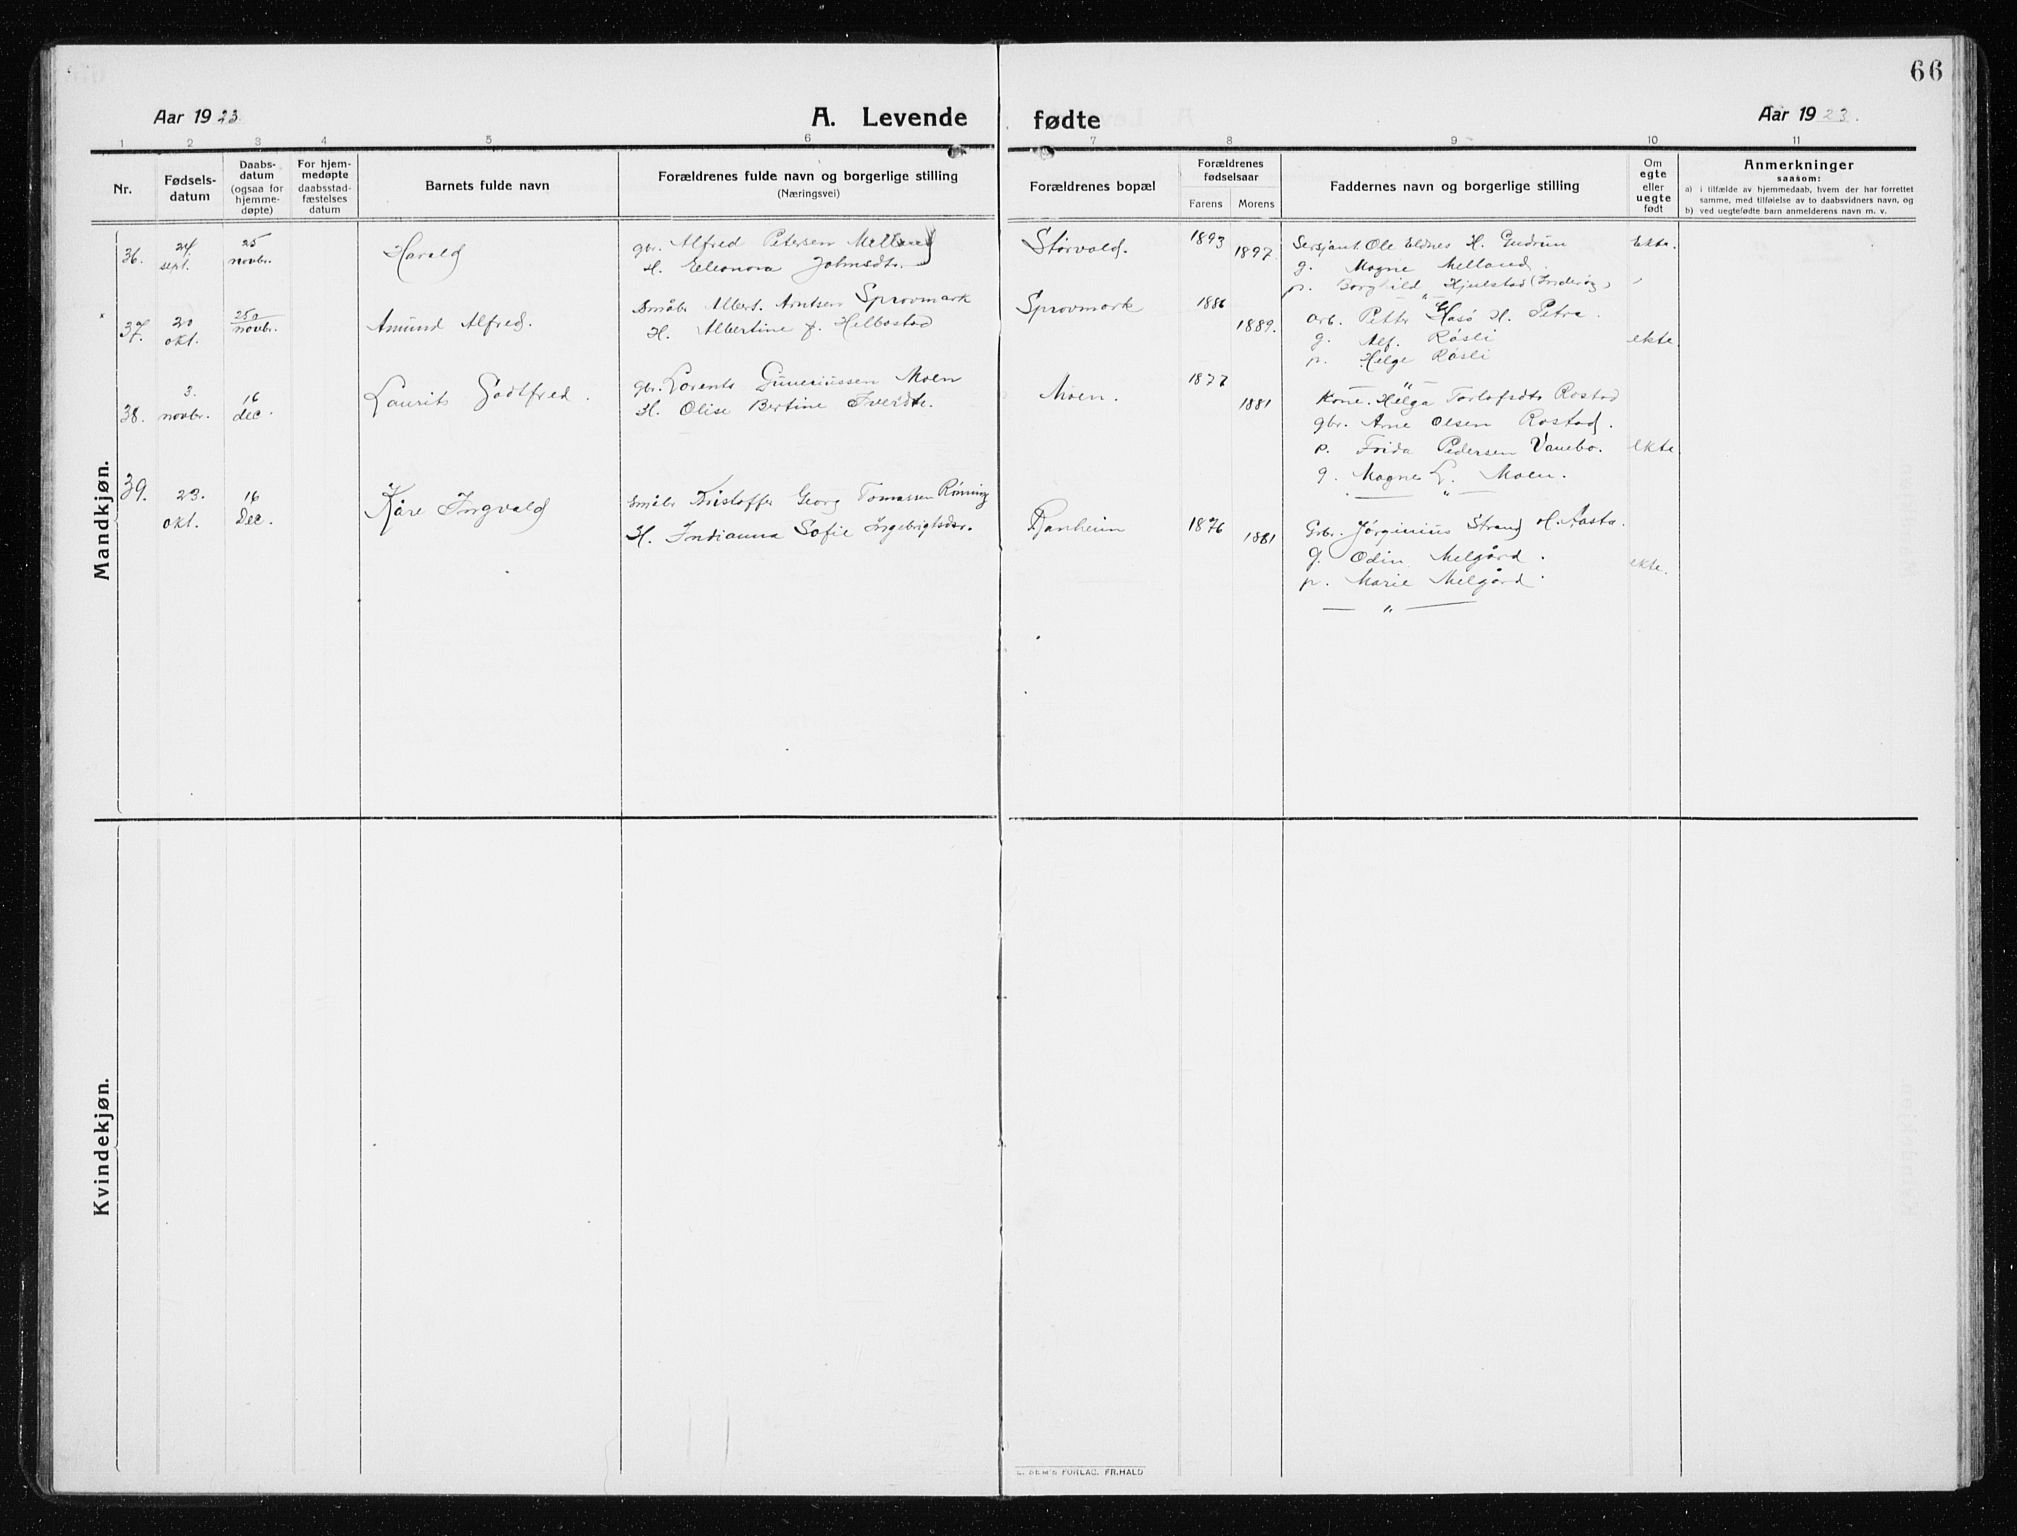 66
Aar 1923
A. Levende fødte
Aar 1923.
1 2 3 4 5 6 7 8 9 10 11
Nr.
Fødsels-
datum
Daabs-
datum
(ogsaa for
hjemme-
døpte)
For hjem-
medøpte
daabsstad-
fæstelses
datum
Barnets fulde navn
Forældrenes fulde navn og borgerlige stilling
(Næringsvei)
Forældrenes bopæl
Forældrenes
fødselsaar
Farens Morens
Faddernes navn og borgerlige stilling
Om
egte
eller
uegte
født
Anmerkninger
saasom:
a) i tilfælde av hjemmedaab, hvem der har forrettet
samme, med tilføielse av to daabsvidners navn, og
b) ved uegtefødte barn anmelderens navn m. v.
Mandkjøn.
36.
24.
sept.
25
novbr.
Harald
gbr. Alfred Petersen Melland
H. Eleonora Johnsdtr.
Størvold.
1893
1897.
Sersjant Ole Eldnes H. Gudrun
g. Magne Melland
p. Borghild Hjulstad (Inderøy)
„
Ekte.
37.
20
okt.
25
novbr.
Amund Alfred.
Småbr Albert Arntsen Sprovmark
H. Albertine f. Helbostad
Sprovmark
1886
1889.
arb. Petter Hasø H. Petra.
g. Alf. Røsli
p. Helge Røsli
„
ekte
38.
3.
novbr.
16
dec.
Laurits Godtfred.
gbr. Lorents Gunesiussen Moen
H. Olise Bertine Iversdtr.
Moen.
1877
1881
Kone. Helga Torlofsdtr Rostad
gbr. Arne Olsen Rostad.
p. Frida Pedersen Vanebo.
g. Magne L. Moen.
„
ekte
39.
23.
okt.
16
Dec.
Kåre Ingvald
Småbr Kristoffer Georg Tomassen Rönning
H. Indianna Sofie Ingebrigtsdtr.
Ranheim
1876
1881
Grbr. Jørginius Strand H. Aasta.
g. Odin Melgård.
p. Marie Melgård.
„
ekte.
Kvindekjøn.
FORLAG. FR. HALD